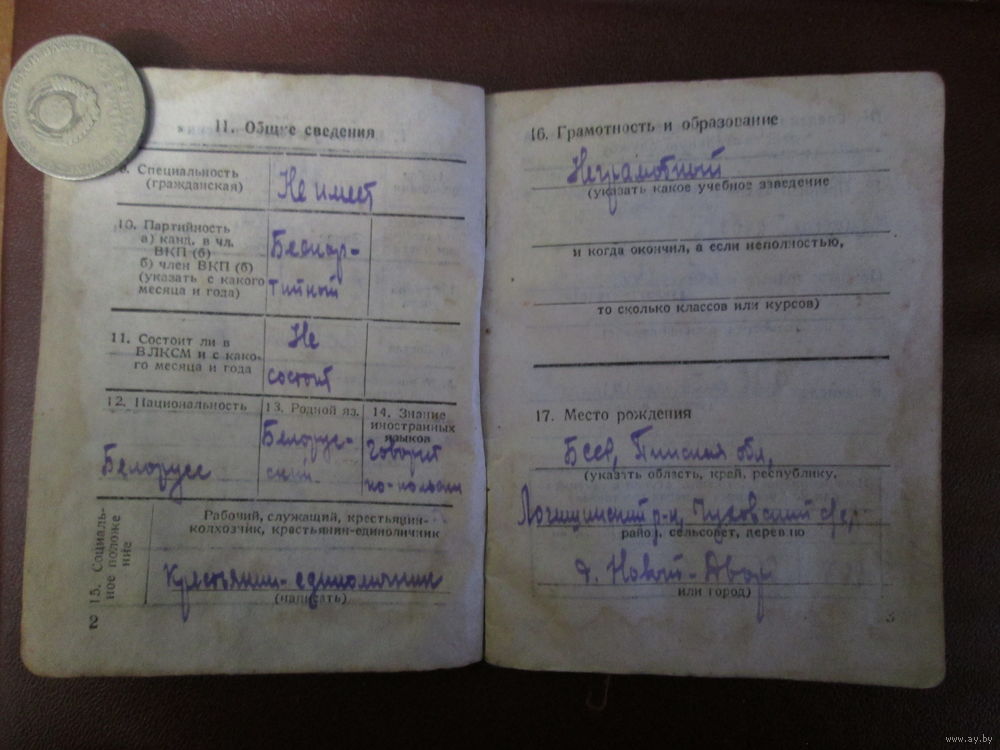 СОВЕТСКОЙ ВЛАСТИ
11. Общие сведения
Специальность
(гражданская)
Не имеет
10. Партийность
а) канд. в чл.
ВКП (б)
б) член ВКП (б)
(указать с какого
месяца и года)
Беспар-
тийный
11. Состоит ли в
ВЛКСМ и с како-
го месяца и года
Не
состоит
12. Национальность
Белорусс
13. Родной яз.
Белорус-
ский
14. Знание
иностранных
языков
Говорит
по-польски
15. Социаль-
ное положе
ние
Рабочий, служащий, крестьянин-
колхозчик, крастьянин-единоличник
Крестьянин-единоличник
(написать)
2
16. Грамотность и образование
Неграмотный
(указать какое учебное заведение
и когда окончил, а если неполностью,
то сколько классов или курсов)
17. Место рождения
Бсср, Пинская обл,
(указать область, край, республику,
Логишинский р-н, Чуховский с/с,
район, сельсовет, деревню
д. Новой-Двор
или город)
3
www.ay.by